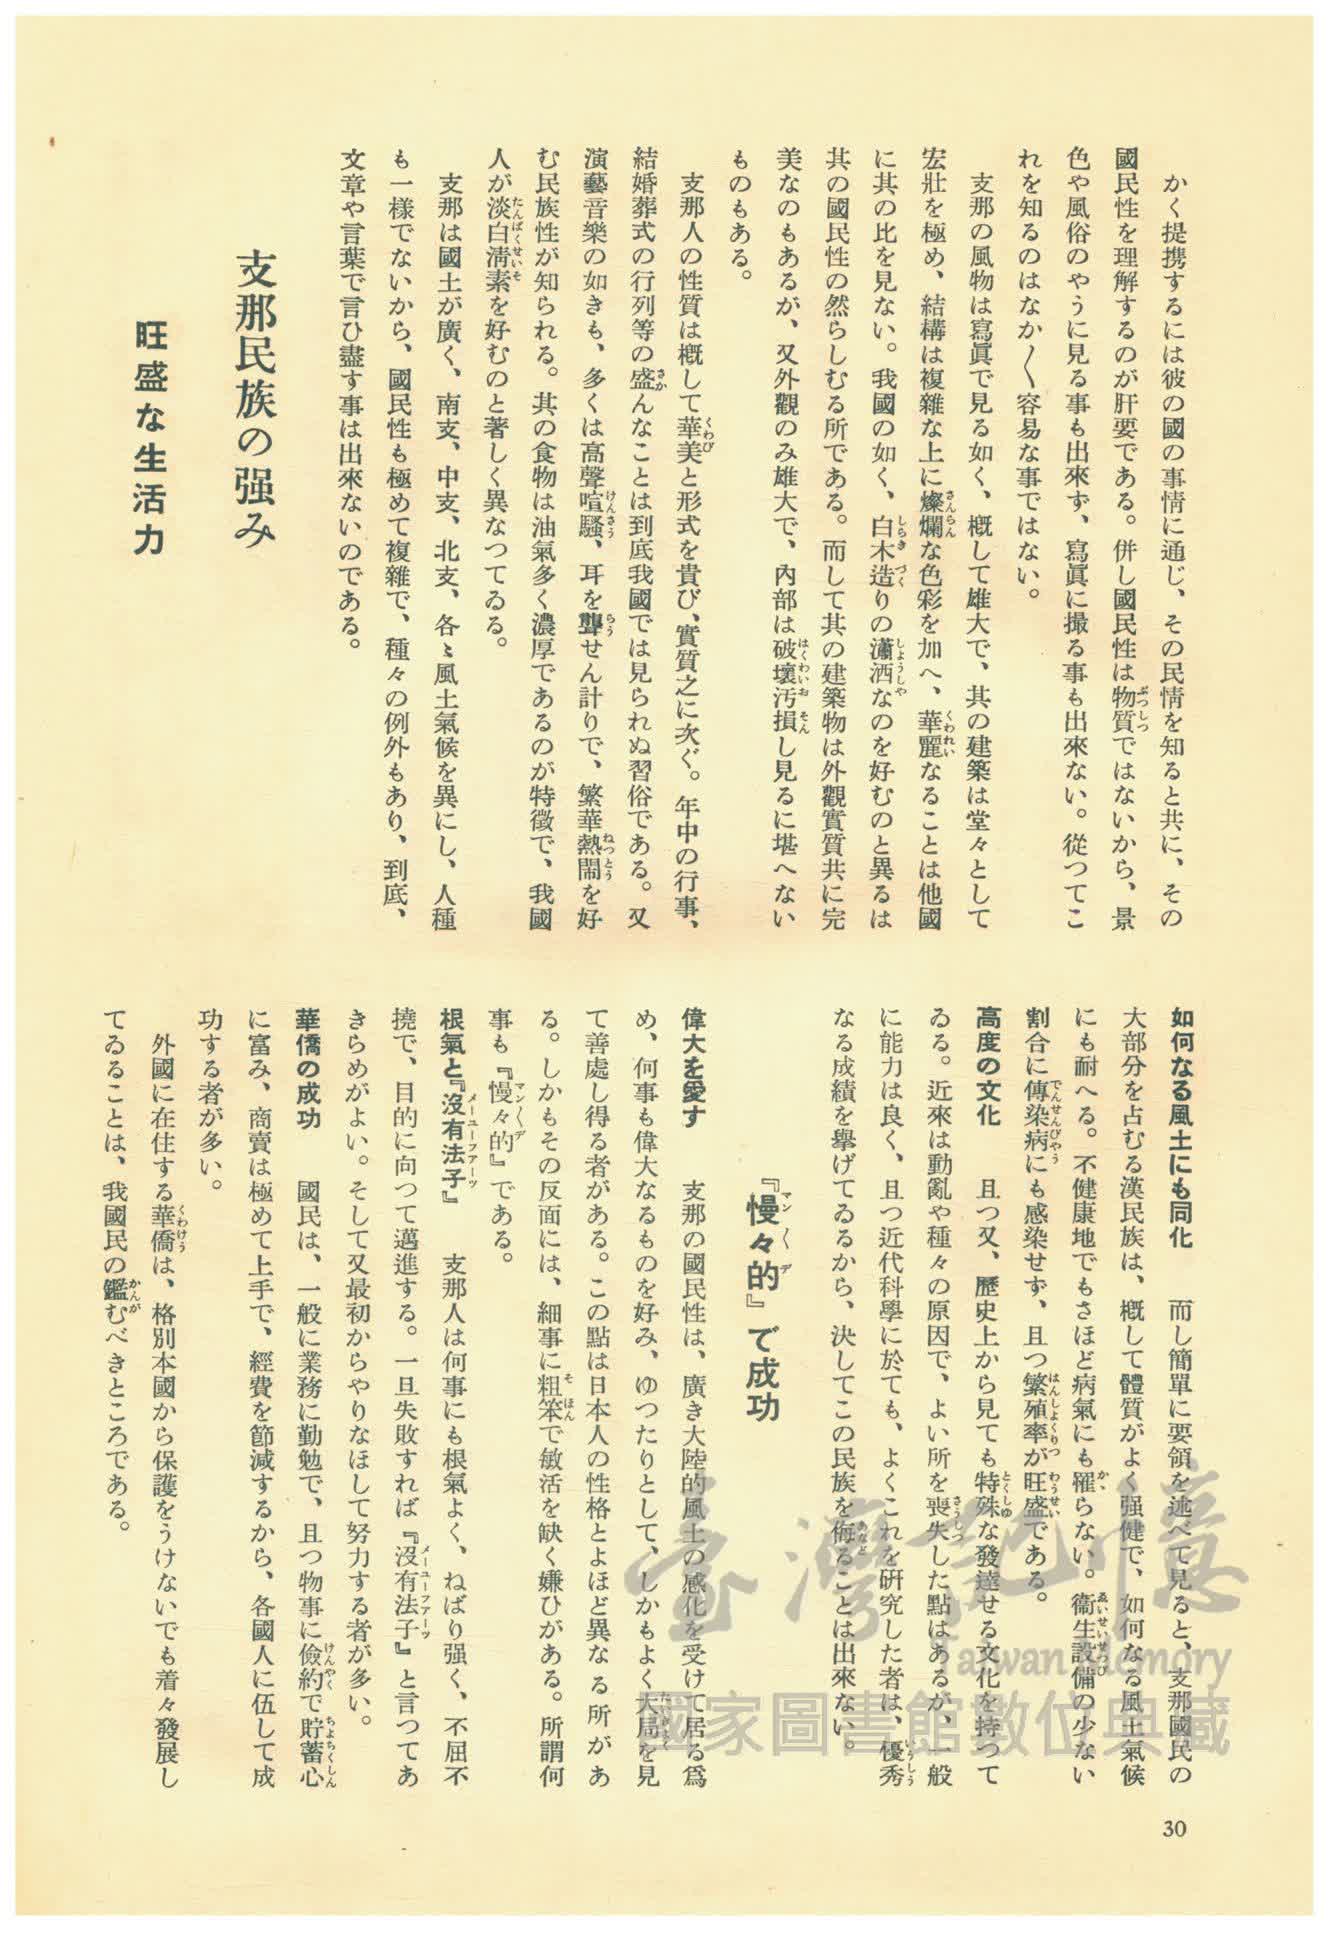 かく提携するには彼の國の事情に通じ、その民情を知ると共に、その
國民性を理解するのが肝要である。併し國民性は物質ではないから、景
色や風俗のやうに見る事も出來ず、寫眞に撮る事も出來ない。從つてこ
れを知るのはなか〱容易な事ではない。
支那の風物は寫眞で見る如く、概して雄大で、其の建築は堂々として
宏壯を極め、結構は複雜な上に燦爛な色彩を加へ、華麗なることは他國
に其の比を見ない。我國の如く、白木造りの瀟洒なのを好むのと異るは
其の國民性の然らしむる所である。而して其の建築物は外觀實質共に完
美なのもあるが、又外觀のみ雄大で、內部は破壞汚損し見るに堪へない
ものもある。
支那人の性質は概して華美と形式を貴び、實質之に次ぐ。年中の行事、
結婚葬式の行列等の盛んなことは到底我國では見られぬ習俗である。又
演藝音樂の如きも、多くは高聲喧騷、耳を聾せん計りで、繁華熱鬧を好
む民族性が知られる。其の食物は油氣多く濃厚であるのが特徵で、我國
人が淡白淸素を好むのと著しく異なつてゐる。
支那は國土が廣く、南支、中支、北支、各〻風土氣候を異にし、人種
も一樣でないから、國民性も極めて複雜で、種々の例外もあり、到底、
文章や言葉で言ひ盡す事は出來ないのである。
支那民族の强み
旺盛な生活力
如何なる風土にも同化　而し簡單に要領を述べて見ると、支那國民の
大部分を占むる漢民族は、概して體質がよく强健で、如何なる風土氣候
にも耐へる。不健康地でもさほど病氣にも罹らない。衞生設備の少ない
割合に傳染病にも感染せず、且つ繁殖率が旺盛である。
高度の文化　且つ又、歷史上から見ても特殊な發達せる文化を持つて
ゐる。近來は動亂や種々の原因で、よい所を喪失した點はあるが、一般
に能力は良く、且つ近代科學に於ても、よくこれを硏究した者は、優秀
なる成績を擧げてゐるから、決してこの民族を侮ることは出來ない。
『慢々的』で成功
偉大を愛す　支那の國民性は、廣き大陸的風土の感化を受けて居る爲
め、何事も偉大なるものを好み、ゆつたりとして、しかもよく大局を見
て善處し得る者がある。この點は日本人の性格とよほど異なる所があ
る。しかもその反面には、細事に粗笨で敏活を缺く嫌ひがある。所謂何
事も『慢々的』である。
根氣と『沒有法子』　支那人は何事にも根氣よく、ねばり强く、不屈不
撓で、目的に向つて邁進する。一旦失敗すれば『沒有法子』と言つてあ
きらめがよい。そして又最初からやりなほして努力する者が多い。
華僑の成功　國民は、一般に業務に勤勉で、且つ物事に儉約で貯蓄心
に富み、商賣は極めて上手で、經費を節減するから、各國人に伍して成
功する者が多い。
外國に在住する華僑は、格別本國から保護をうけないでも着々發展し
てゐることは、我國民の鑑むべきところである。
30
臺灣記憶
Taiwan Memory
國家圖書館數位典藏